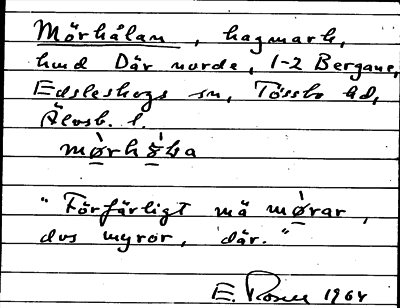 Mörhålan, hagmark,
hmd Där norde, 1-2 Bergane,
Edsleskogs sn, Tössbo hd,
Älvsb. l.
"Förfärligt mä mørar,
dvs myror, där."
E. Rosen 1964